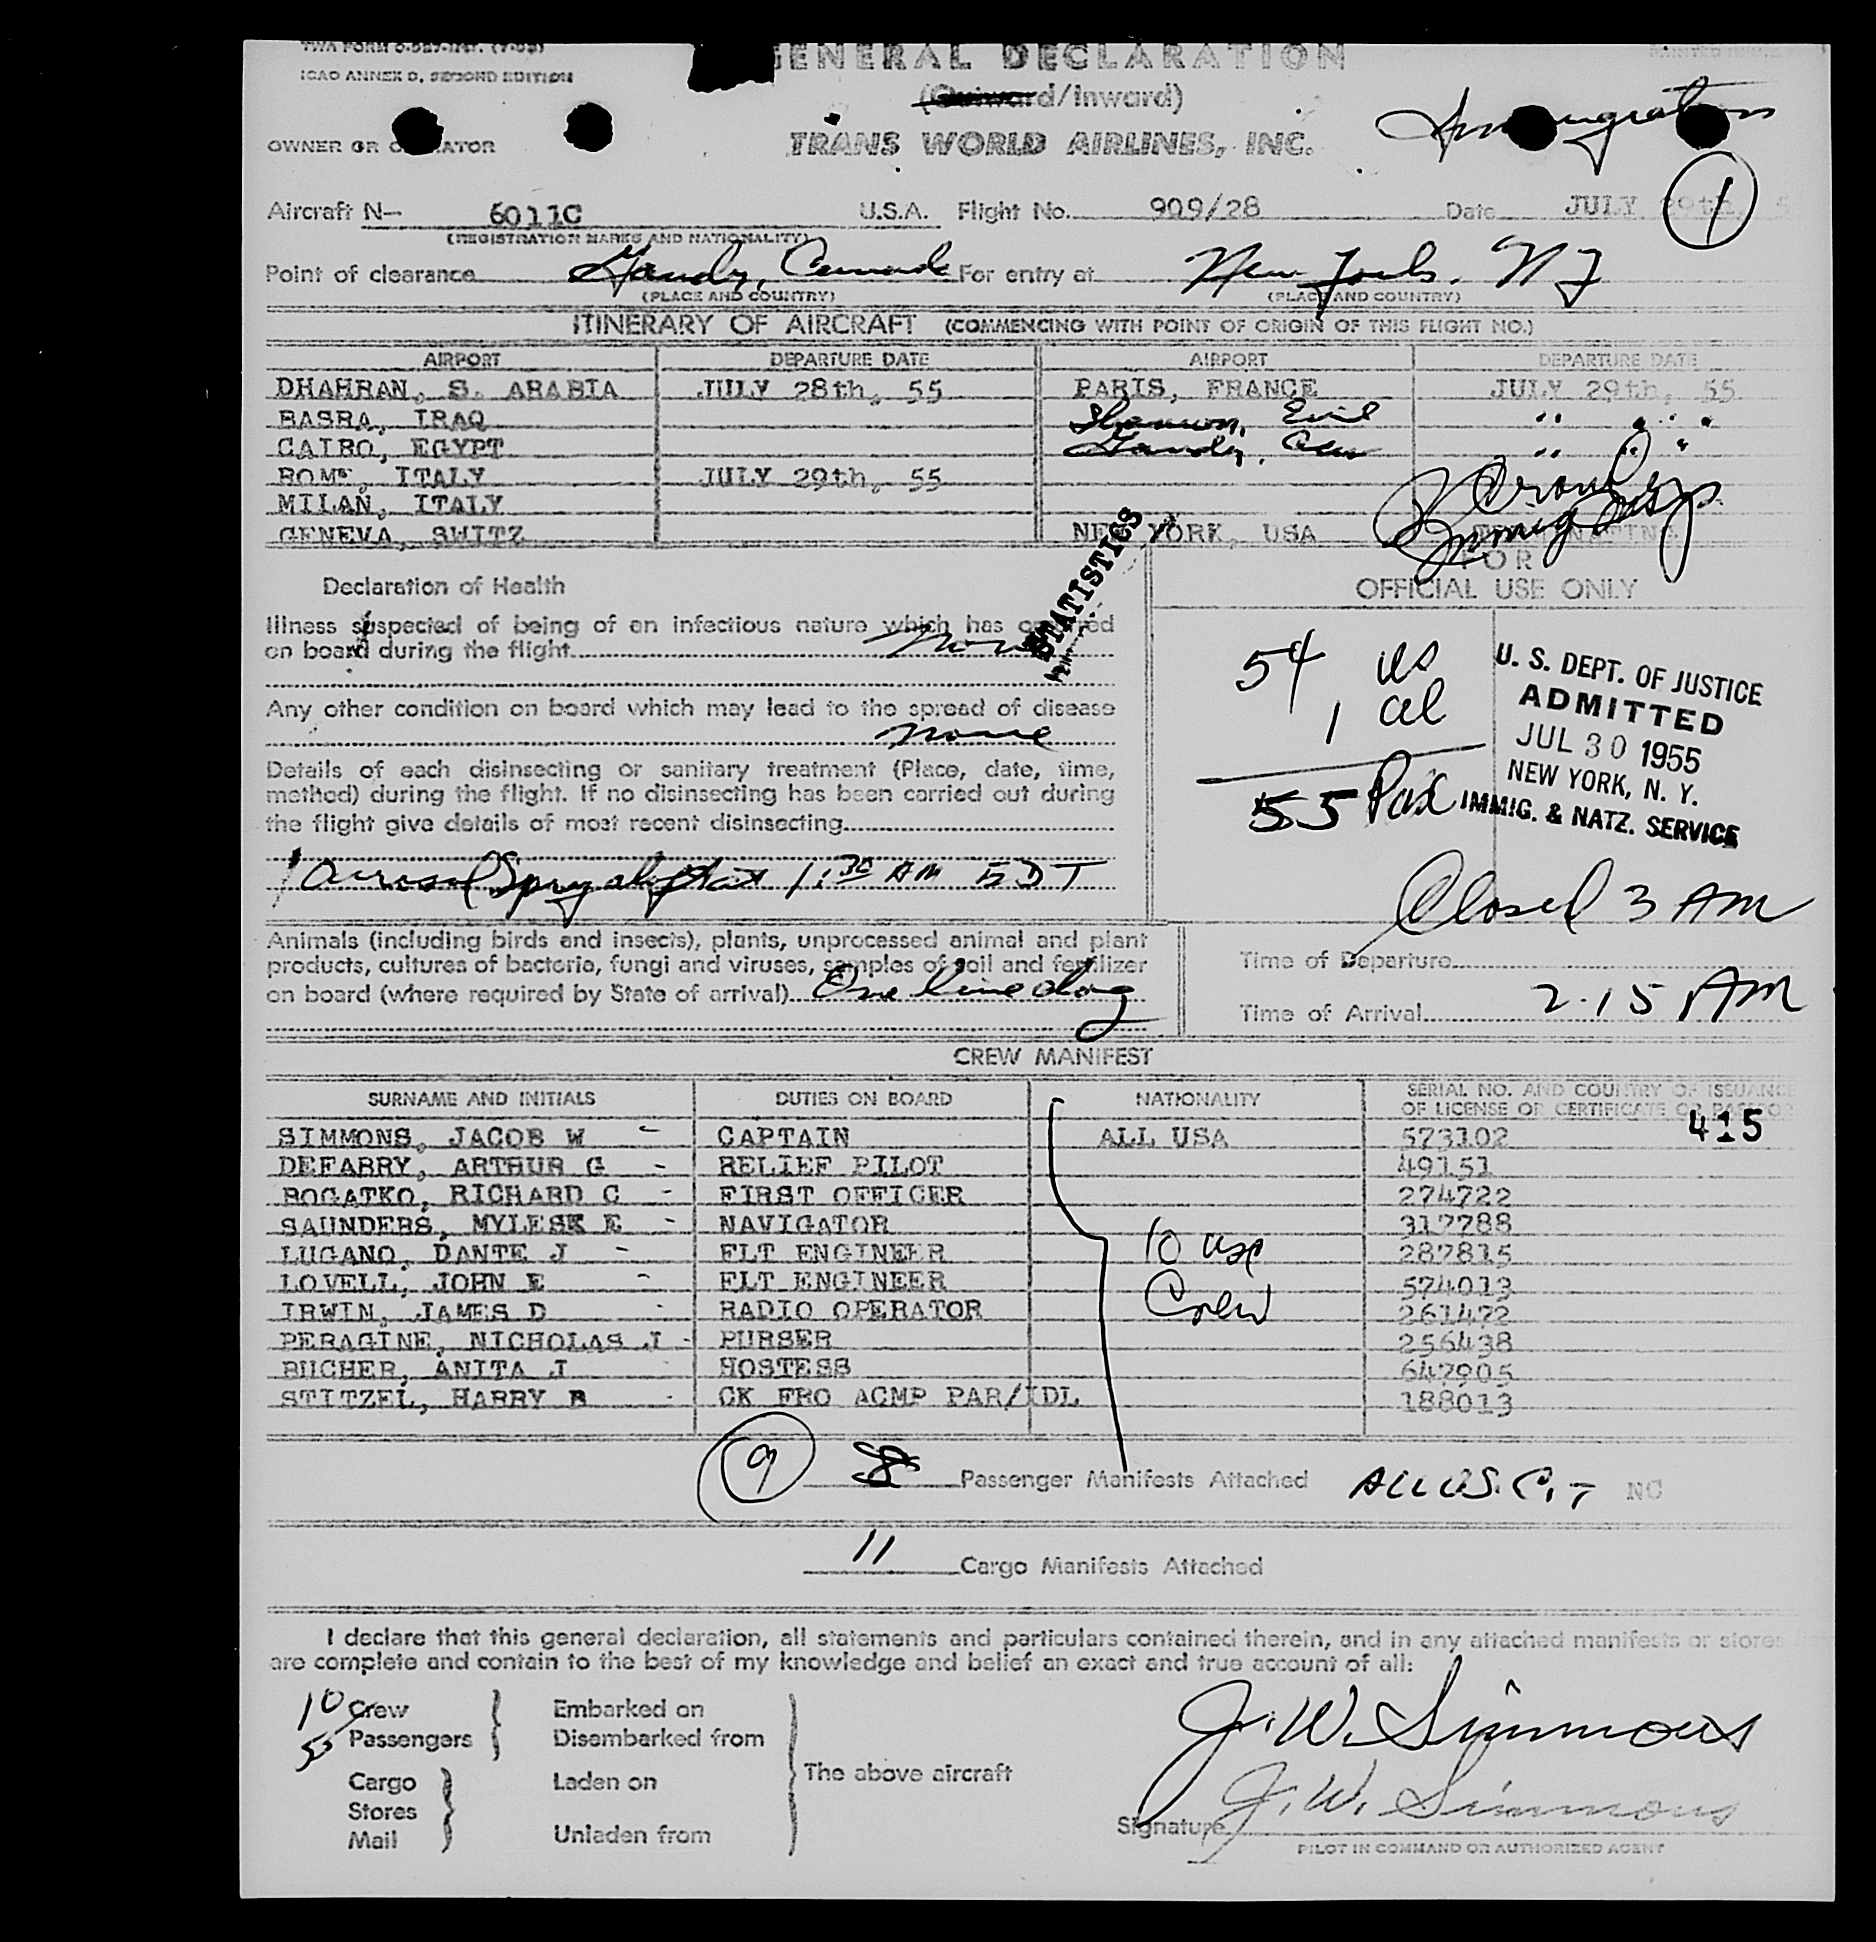 ICAO ANNEX D, SECOND EDITION
GENERAL DECLARATION
(Outward/Inward)
Immigration
OWNER OR OPERATOR TRANS WORLD AIRLINES, INC.
1
Aircraft N— 6011C U.S.A. Flight No. 909/28 Date JULY 29th, 5
(REGISTRATION MARKS AND NATIONALITY)
Point of clearance Gander, Canada For entry at New York, NY
(PLACE AND COUNTRY) (PLACE AND COUNTRY)
ITINERARY OF AIRCRAFT (COMMENCING WITH POINT OF ORIGIN OF THIS FLIGHT NO.)
AIRPORT DEPARTURE DATE AIRPORT DEPARTURE DATE
DHAHRAN, S. ARABIA JULY 28th, 55 PARIS, FRANCE JULY 29th, 55
BASRA, IRAQ Shannon, " " "
CAIRO, EGYPT Gander, Can " " "
ROME, ITALY JULY 29th, 55
MILAN, ITALY
GENEVA, SWITZ NEW YORK, USA TERMINATING
Immig Insp
STATISTICS
FOR
OFFICIAL USE ONLY
Declaration of Health
Illness suspected of being of an infectious nature which has occurred
on board during the flight None
Any other condition on board which may lead to the spread of disease
None
Details of each disinsecting or sanitary treatment (Place, date, time,
method) during the flight. If no disinsecting has been carried out during
the flight give details of most recent disinsecting
1 Aerosol Spray at 1:30 AM EDT
54 US
1 al
55 Pax
U. S. DEPT. OF JUSTICE
ADMITTED
JUL 30 1955
NEW YORK, N. Y.
IMMIG. & NATZ. SERVICE
Closed 3 AM
Animals (including birds and insects), plants, unprocessed animal and plant
products, cultures of bacteria, fungi and viruses, samples of soil and fertilizer
on board (where required by State of arrival) One live dog
Time of Departure
Time of Arrival 2.15 AM
CREW MANIFEST
SURNAME AND INITIALS DUTIES ON BOARD NATIONALITY SERIAL NO. AND COUNTRY OF ISSUANCE
OF LICENSE OR CERTIFICATE OR PASSPO
415
SIMMONS, JACOB W - CAPTAIN ALL USA 573102
DEFABRY, ARTHUR G - RELIEF PILOT 49151
BOGATKO, RICHARD C - FIRST OFFICER 274722
SAUNDERS, MYLESK E - NAVIGATOR 317788
LUGANO, DANTE J - FLT ENGINEER 287815
LOVELL, JOHN E - FLT ENGINEER 574013
IRWIN, JAMES D - RADIO OPERATOR 261472
PERAGINE, NICHOLAS J - PURSER 256438
BUCHER, ANITA J HOSTESS 647905
STITZEL, HARRY B - CK FRO ACMP PAR/IDL 188013
10 usa
Crew
9 8 Passenger Manifests Attached ALL U.S. CIT NC
11 Cargo Manifests Attached
I declare that this general declaration, all statements and particulars contained therein, and in any attached manifests or stores
are complete and contain to the best of my knowledge and belief an exact and true account of all:
10 Crew Embarked on
55 Passengers Disembarked from
The above aircraft
Cargo Laden on
Stores
Mail Unladen from
J. W. Simmons
Signature J. W. Simmons
PILOT IN COMMAND OR AUTHORIZED AGENT